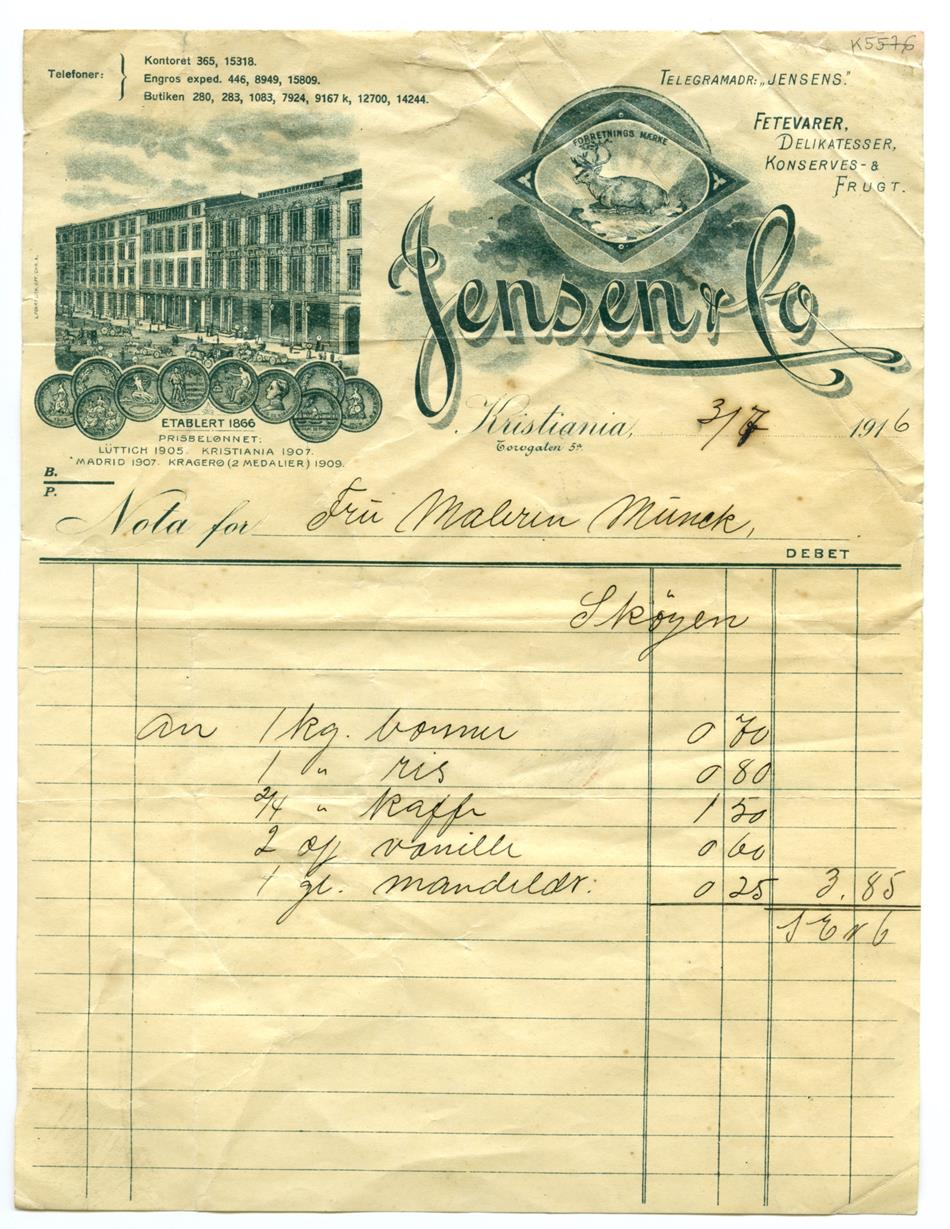 K5576
Telefoner:
Kontoret 365, 15318.
Engros exped. 446, 8949, 15809.
Butiken 280, 283, 1083, 7924, 9167 k, 12700, 14244.
TELEGRAMADR: „JENSENS."
FETEVARER,
DELIKATESSER,
KONSERVES- &
FRUGT.
FORRETNINGS MÆRKE
Jensen & Co
ETABLERT 1866
PRISBELØNNET:
LÜTTICH 1905. KRISTIANIA 1907.
MADRID 1907. KRAGERØ (2 MEDALIER) 1909.
Kristiania, 3/7 1916
Torvgaten 5a
B.
P.
Nota for Fru Malerin Munck,
DEBET
Sköyen
an 1 kg. bonner 0 70
1 " ris 0 80
2/4 " kaffe 1 50
2 vanille 0 60
1 gl. mandeldr: 0 25 3.85